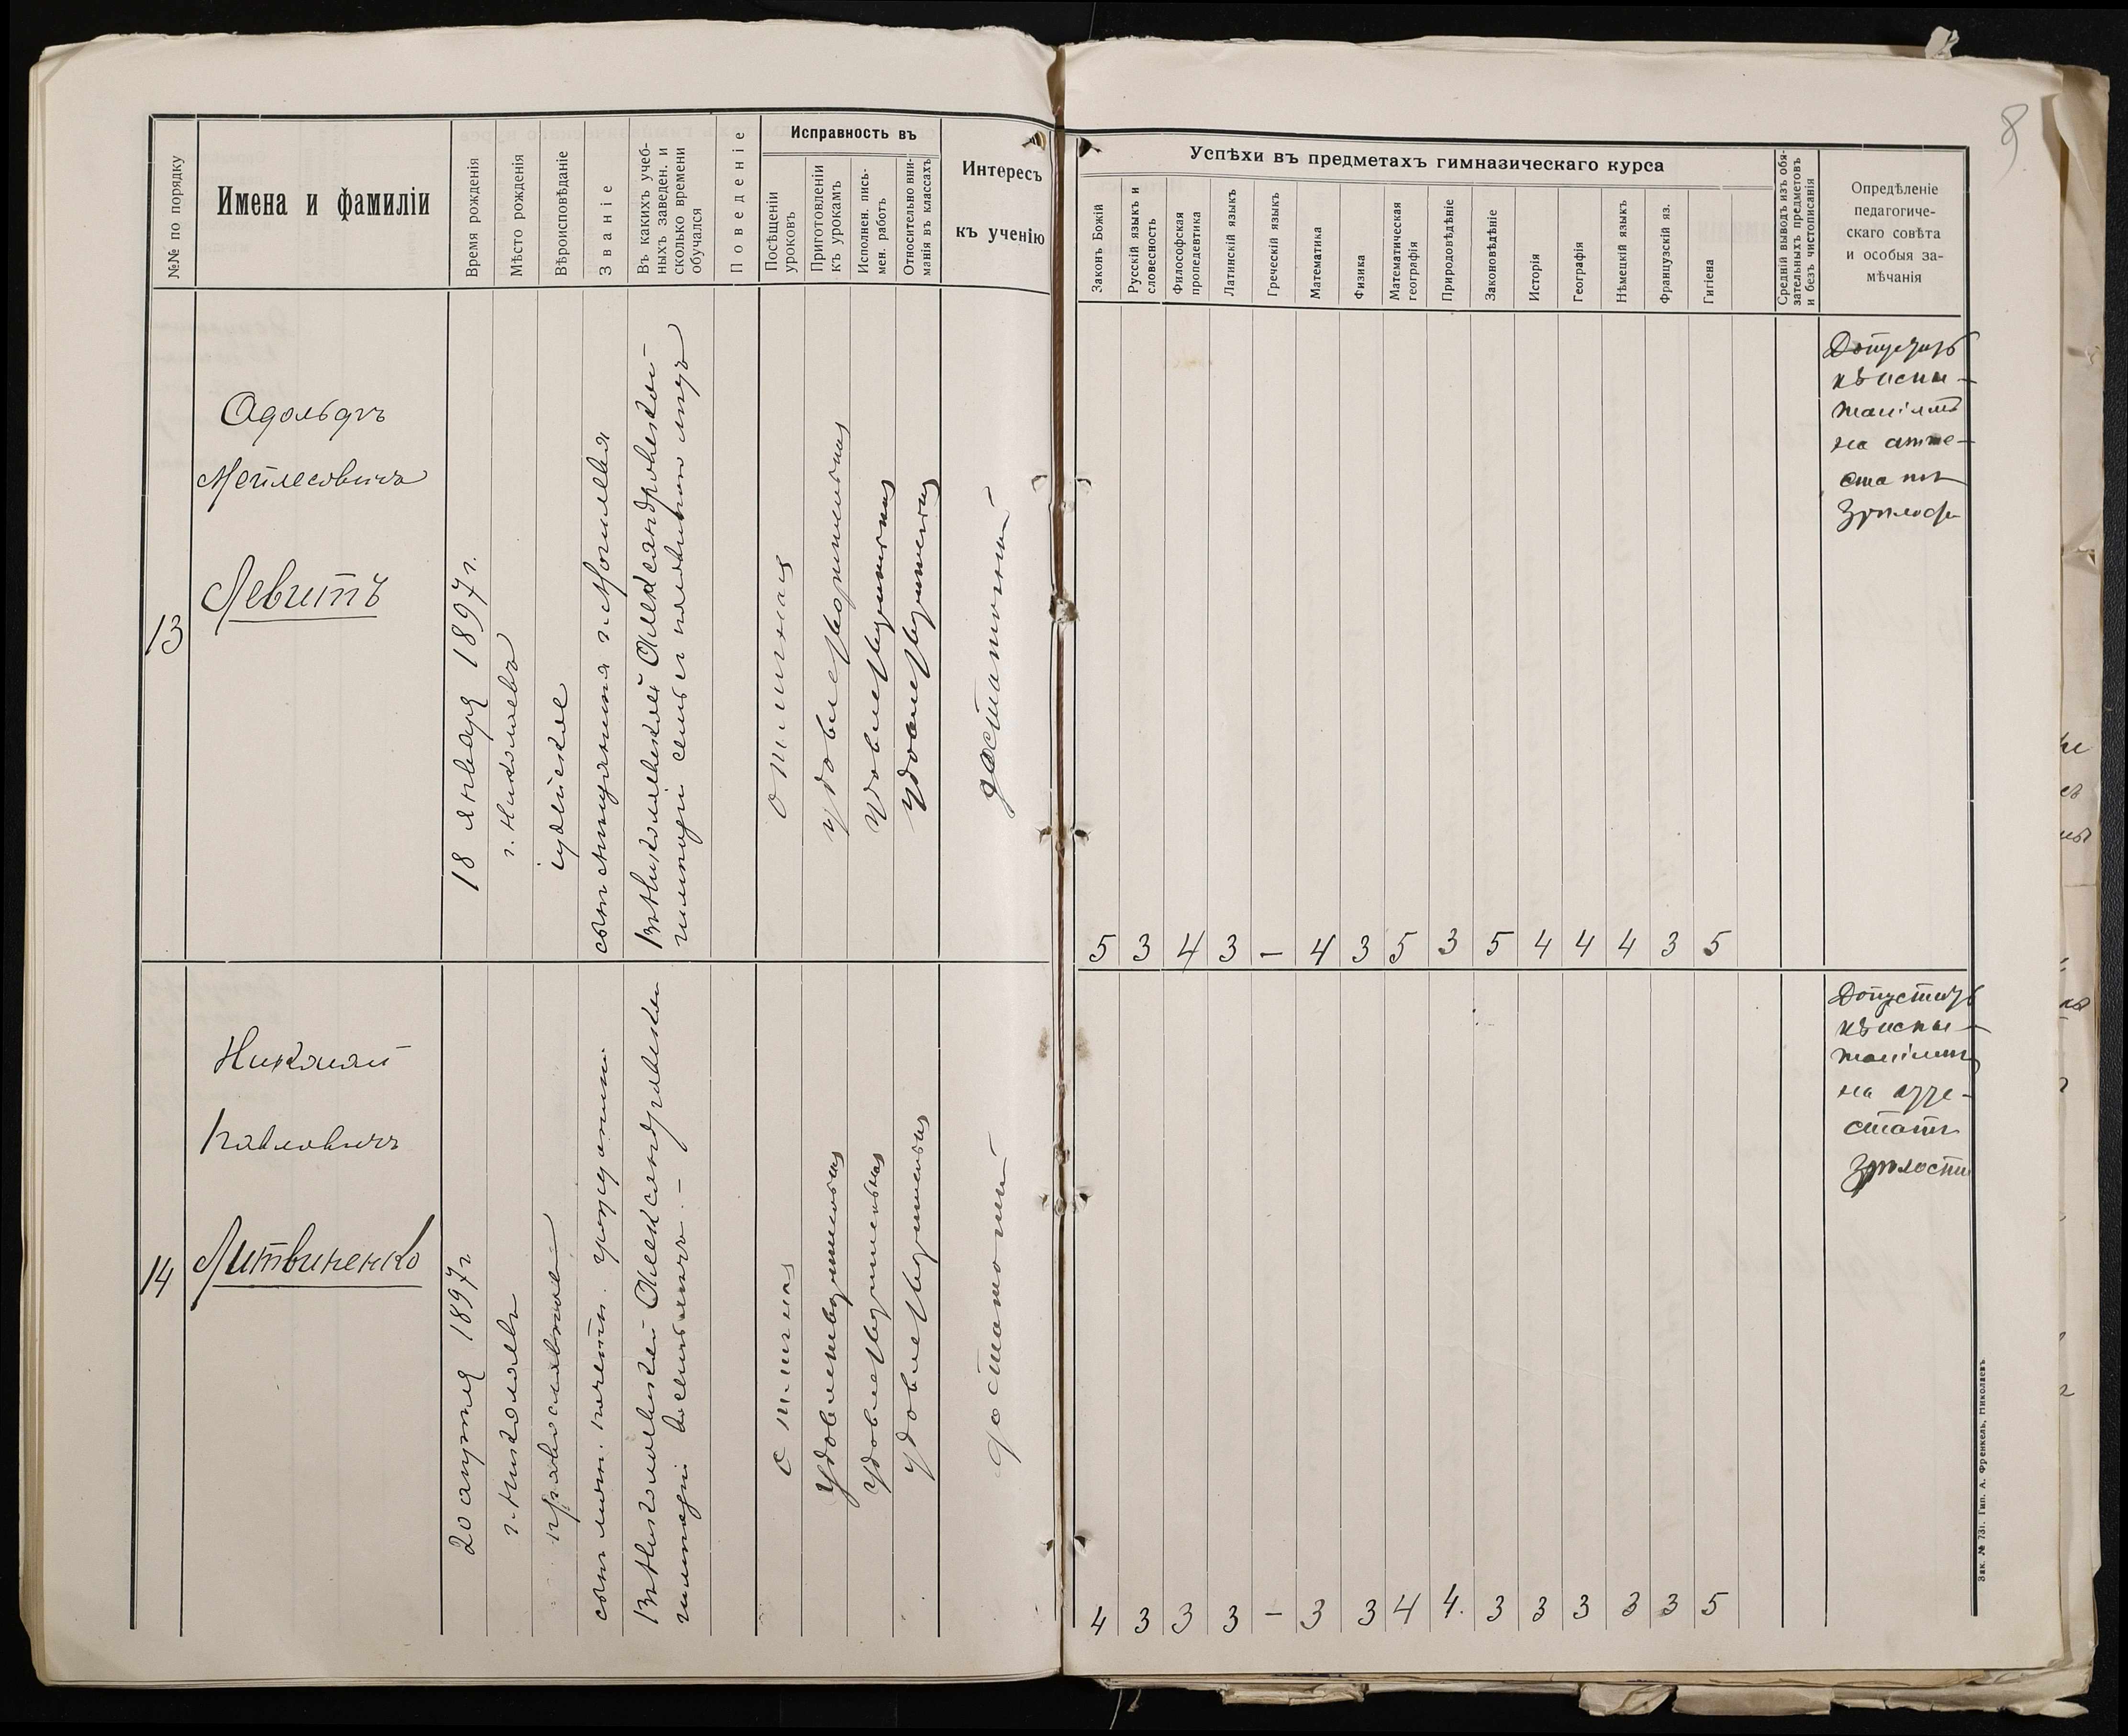 8
№№ по порядку
Имена и фамиліи
Время рожденія
Мѣсто рожденія
Вѣроисповѣданіе
Званіе
Въ какихъ учеб-
ныхъ заведен. и
сколько времени
обучался
Поведеніе
Исправность въ
Посѣщеніи
уроковъ
Приготовленіи
къ урокамъ
Исполнен. пись-
мен. работъ
Относительно вни-
манія въ классахъ
Интересъ
къ ученію
Успѣхи въ предметахъ гимназическаго курса
Законъ Божій
Русскій языкъ и
словесность
Философская
пропедевтика
Латинскій языкъ
Греческій языкъ
Математика
Физика
Математическая
географія
Природовѣдѣніе
Законовѣдѣніе
Исторія
Географія
Нѣмецкій языкъ
Французскій яз.
Гигіена
Средній выводъ изъ обя-
зательныхъ предметовъ
и безъ чистописанія
Опредѣленіе
педагогиче-
скаго совѣта
и особыя за-
мѣчанія
13
Адольфъ
Мейлесовичъ
Левитъ
18 января 1897 г.
г. Николаевъ
іудейское
сынъ мѣщанина г. Могилева
Въ Николаевской Александровской
гимназіи семь съ половиною лѣтъ
отличная
удовлетворительная
удовлетворительная
удовлетворительная
достаточный
5 3 4 3 – 4 3 5 3 5 4 4 4 3 5
Допустить
къ испы-
таніямъ
на атте-
статъ
зрѣлости
14
Николай
Павловичъ
Литвиненко
20 апрѣля 1897 г.
г. Николаевъ
православное
сынъ личн. почетн. гражданин.
Въ Николаевской Александровской
гимназіи восемь лѣтъ. –
отличная
удовлетворительная
удовлетворительная
удовлетворительная
достаточный
4 3 3 3 – 3 3 4 4. 3 3 3 3 3 5
Допустить
къ испы-
таніямъ
на атте-
статъ
зрѣлости
Зак. № 731. Тип. А. Френкель, Николаевъ